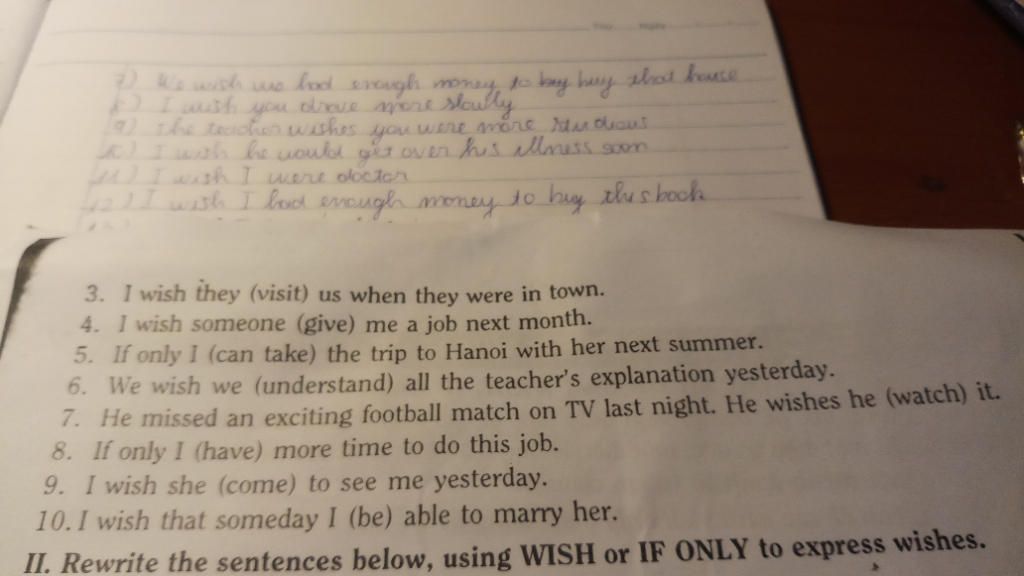 7) We wish we had enough money to buy buy that house
8) I wish you drove more slowly
9) The teacher wishes you were more studious
10) I wish he would get over his illness soon
11) I wish I were doctor
12) I wish I had enough money to buy this book
3. I wish they (visit) us when they were in town.
4. I wish someone (give) me a job next month.
5. If only I (can take) the trip to Hanoi with her next summer.
6. We wish we (understand) all the teacher's explanation yesterday.
7. He missed an exciting football match on TV last night. He wishes he (watch) it.
8. If only I (have) more time to do this job.
9. I wish she (come) to see me yesterday.
10. I wish that someday I (be) able to marry her.
II. Rewrite the sentences below, using WISH or IF ONLY to express wishes.